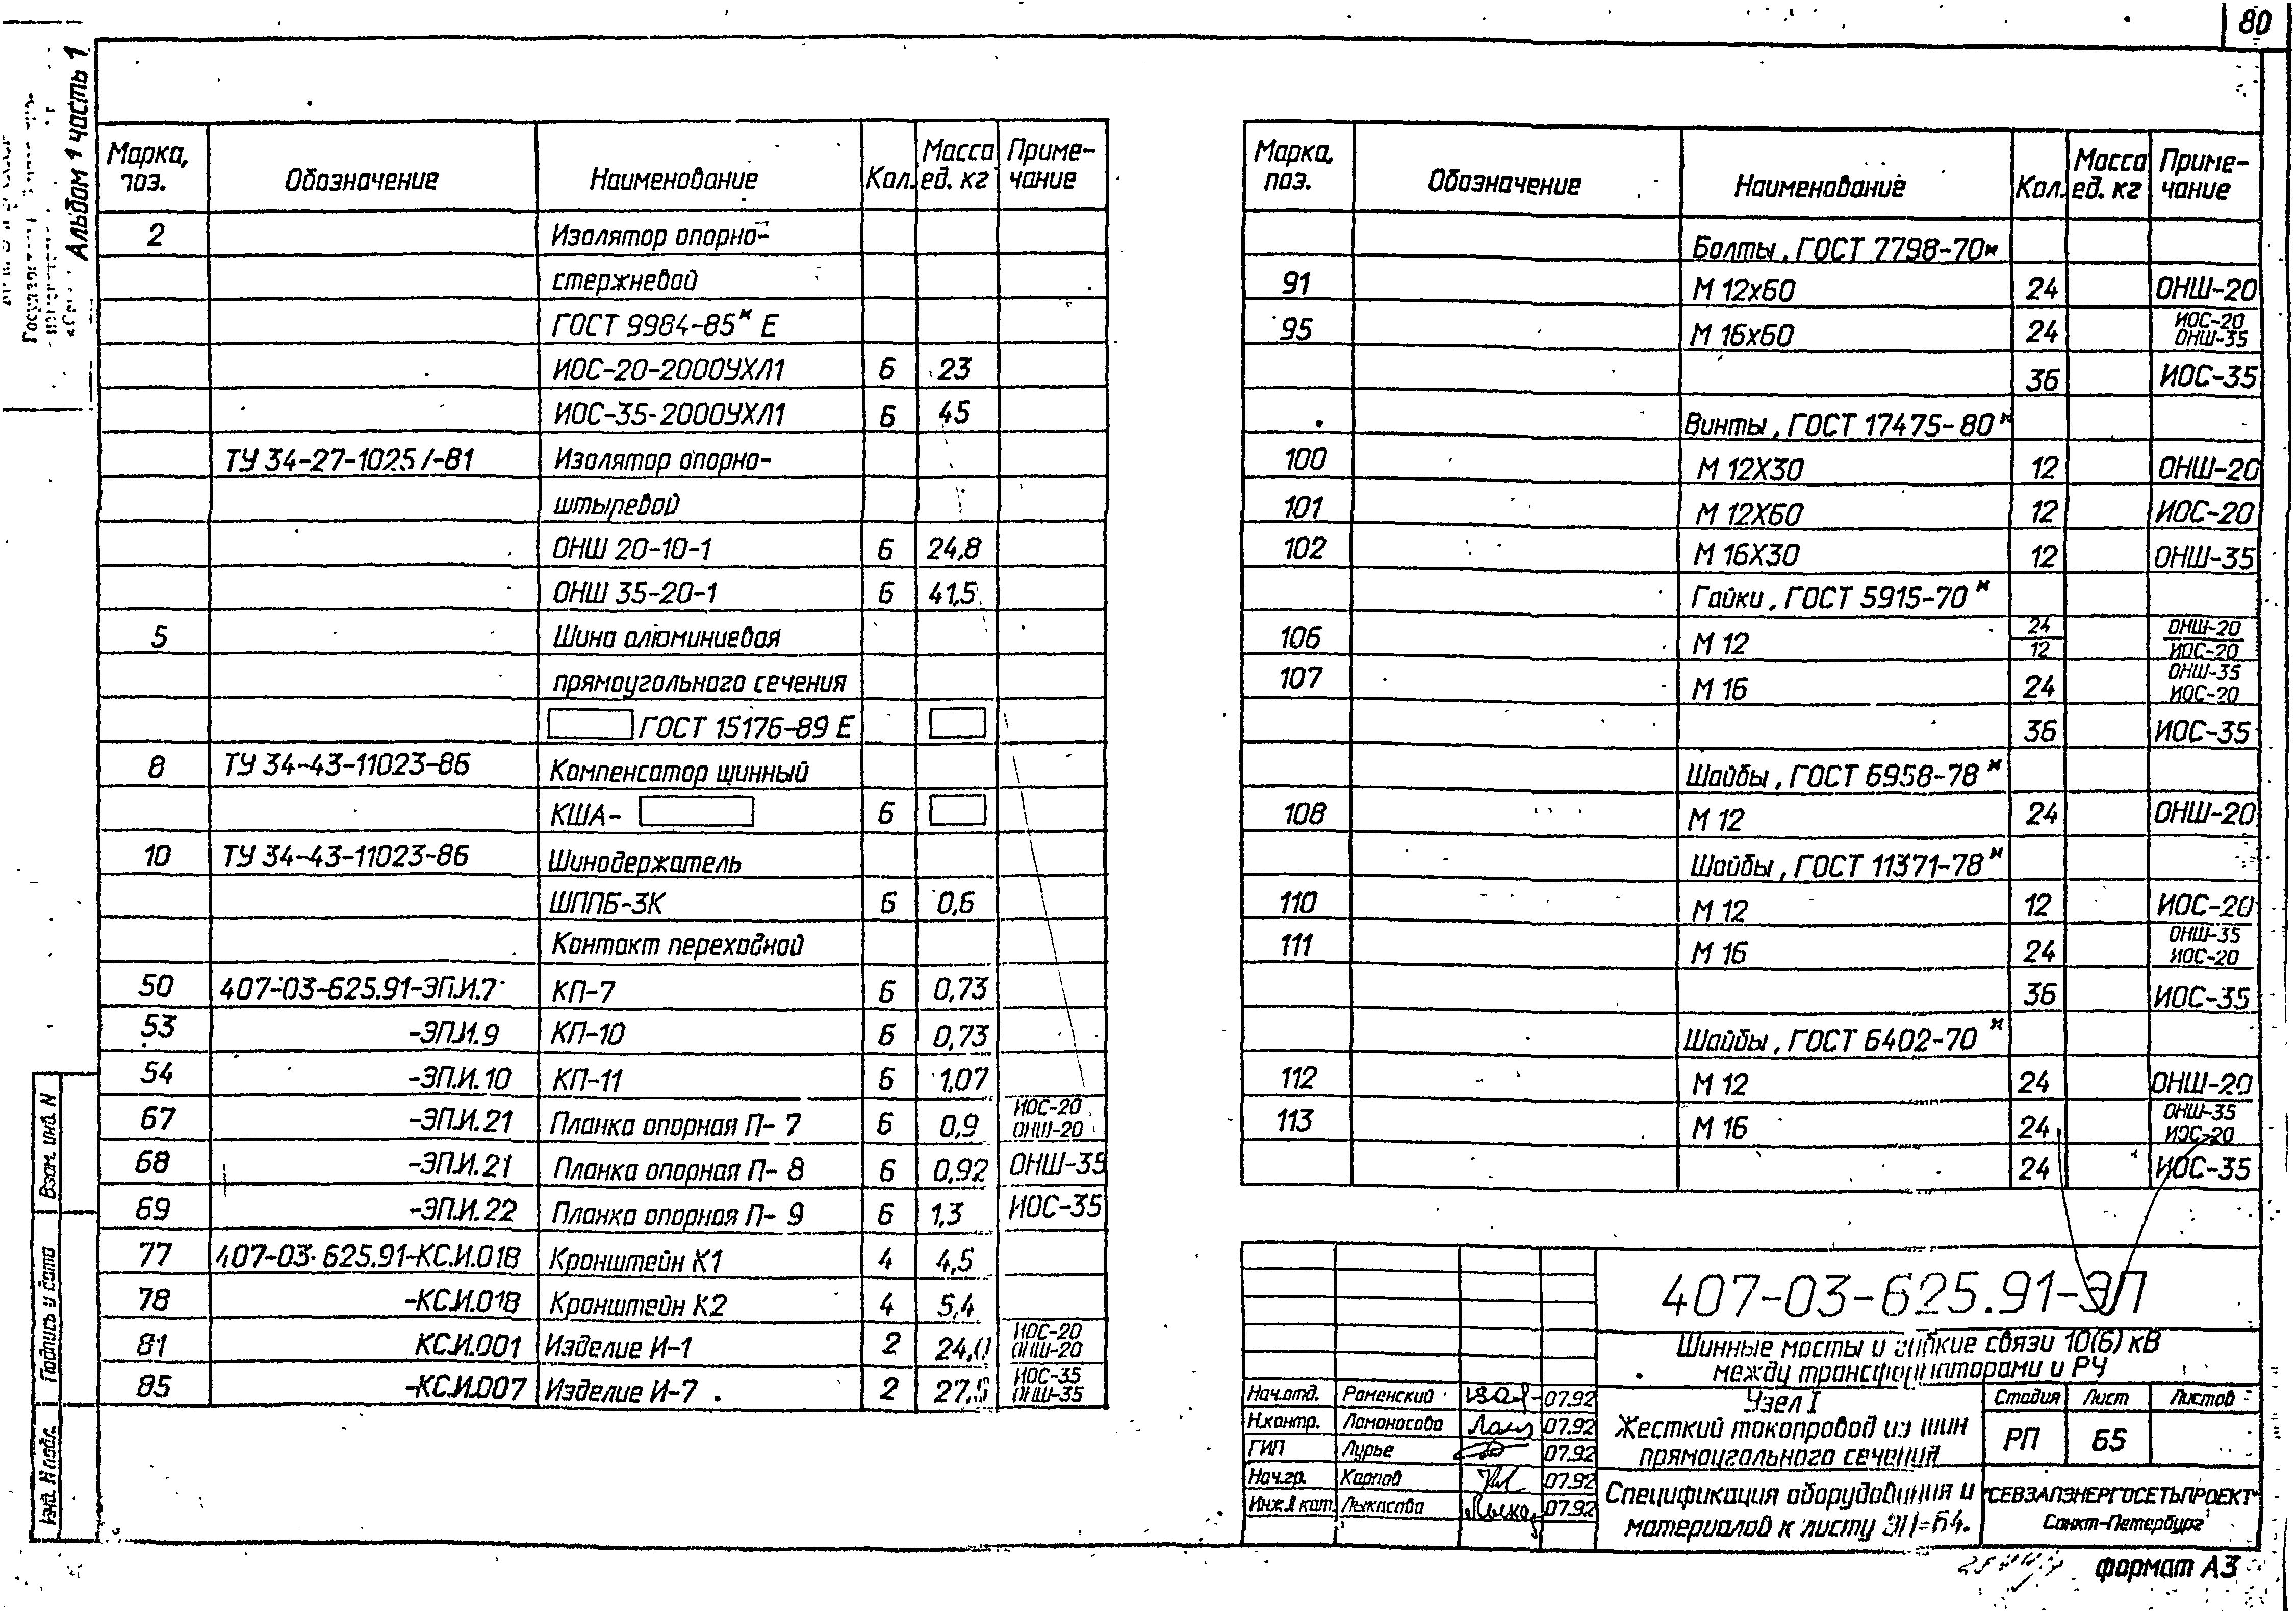 80
Альбом 1 часть 1
Марка, поз. Обозначение Наименование Кол. Масса ед. кг Приме-чание
2 Изолятор опорно-
стержневой
ГОСТ 9984-85* Е
ИОС-20-2000УХЛ1 6 23
ИОС-35-2000УХЛ1 6 45
ТУ 34-27-10251-81 Изолятор опорно-
штыревой
ОНШ 20-10-1 6 24,8
ОНШ 35-20-1 6 41,5
5 Шина алюминиевая
прямоугольного сечения
ГОСТ 15176-89 Е
8 ТУ 34-43-11023-86 Компенсатор шинный
КША- 6
10 ТУ 34-43-11023-86 Шинодержатель
ШППБ-3К 6 0,6
Контакт переходной
50 407-03-625.91-ЭП.И.7 КП-7 6 0,73
53 -ЭП.И.9 КП-10 6 0,73
54 -ЭП.И.10 КП-11 6 1,07
67 -ЭП.И.21 Планка опорная П-7 6 0,9 ИОС-20 ОНШ-20
68 -ЭП.И.21 Планка опорная П-8 6 0,92 ОНШ-35
69 -ЭП.И.22 Планка опорная П-9 6 1,3 ИОС-35
77 407-03-625.91-КС.И.018 Кронштейн К1 4 4,5
78 -КС.И.018 Кронштейн К2 4 5,4
81 КС.И.001 Изделие И-1 2 24,0 ИОС-20 ОНШ-20
85 -КС.И.007 Изделие И-7 2 27,5 ИОС-35 ОНШ-35
Марка, поз. Обозначение Наименование Кол. Масса ед. кг Приме-чание
Болты, ГОСТ 7798-70*
91 М 12х60 24 ОНШ-20
95 М 16х60 24 ИОС-20 ОНШ-35
36 ИОС-35
Винты, ГОСТ 17475-80*
100 М 12Х30 12 ОНШ-20
101 М 12Х60 12 ИОС-20
102 М 16Х30 12 ОНШ-35
Гайки, ГОСТ 5915-70*
106 М 12 24 12 ОНШ-20 ИОС-20
107 М 16 24 ОНШ-35 ИОС-20
36 ИОС-35
Шайбы, ГОСТ 6958-78*
108 М 12 24 ОНШ-20
Шайбы, ГОСТ 11371-78*
110 М 12 12 ИОС-20
111 М 16 24 ОНШ-35 ИОС-20
36 ИОС-35
Шайбы, ГОСТ 6402-70*
112 М 12 24 ОНШ-20
113 М 16 24 ОНШ-35 ИОС-20
24 ИОС-35
407-03-625.91-ЭП
Шинные мосты и гибкие связи 10(6) кВ
между трансформаторами и РУ
Нач.отд. Роменский 07.92
Н.контр. Ломоносова 07.92
ГИП Лурье 07.92
Нач.гр. Карпов 07.92
Инж.II кат. Лыкасова 07.92
Узел I
Жесткий токопровод из шин
прямоугольного сечения
Стадия Лист Листов
РП 65
Спецификация оборудования и
материалов к листу ЭП-64.
"СЕВЗАПЭНЕРГОСЕТЬПРОЕКТ"
Санкт-Петербург
формат А3
Взам. инв. N
Подпись и дата
Инв. N подл.